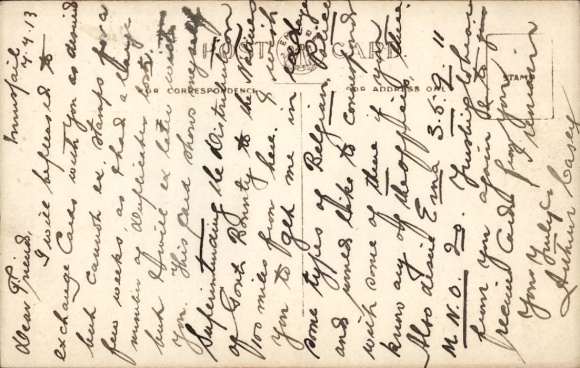 Innisfail
7.4.13
Dear Friend,
I will be pleased to
exchange Cards with you as desired
but cannot ex. stamps for a
few weeks, as I had a large
number of duplicates lost.
but I will ex later with
you. This card shows myself
Superintending the distribution
of Govt Bounty to the Natives
100 miles from here. I wish
you to get me in exchange
some types of Belgian People
and would like to correspond
with some of there if you
know any of
Also desire Ema 3.5.9.11
M.N.O. 20. Trusting to hear
from you again & to
received Cards from you
I remain
Yours Truly
Arthur Casey
POST CARD
FOR CORRESPONDENCE
FOR ADDRESS ONLY
STAMP